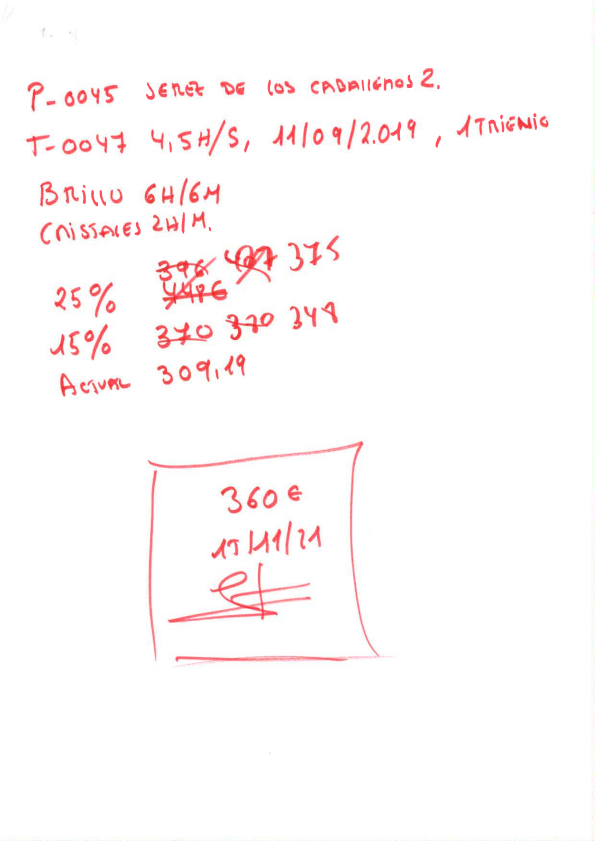 P-0045 JEREZ DE LOS CABALLEROS 2.
T-0047 4,5H/S, 11/09/2.019, 1TRIENIO
BRILLO 6H/6M
CRISTALES 2H/M.
396 407 375
25% 4486
15% 370 370 348
ACTUAL 309,19
360€
15/11/21